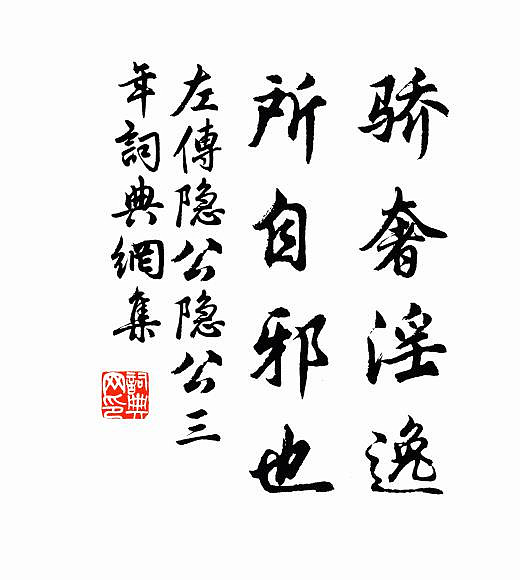 骄奢淫逸
所自邪也
左傳隐公隐公三
年詞典網集
詞典
网印